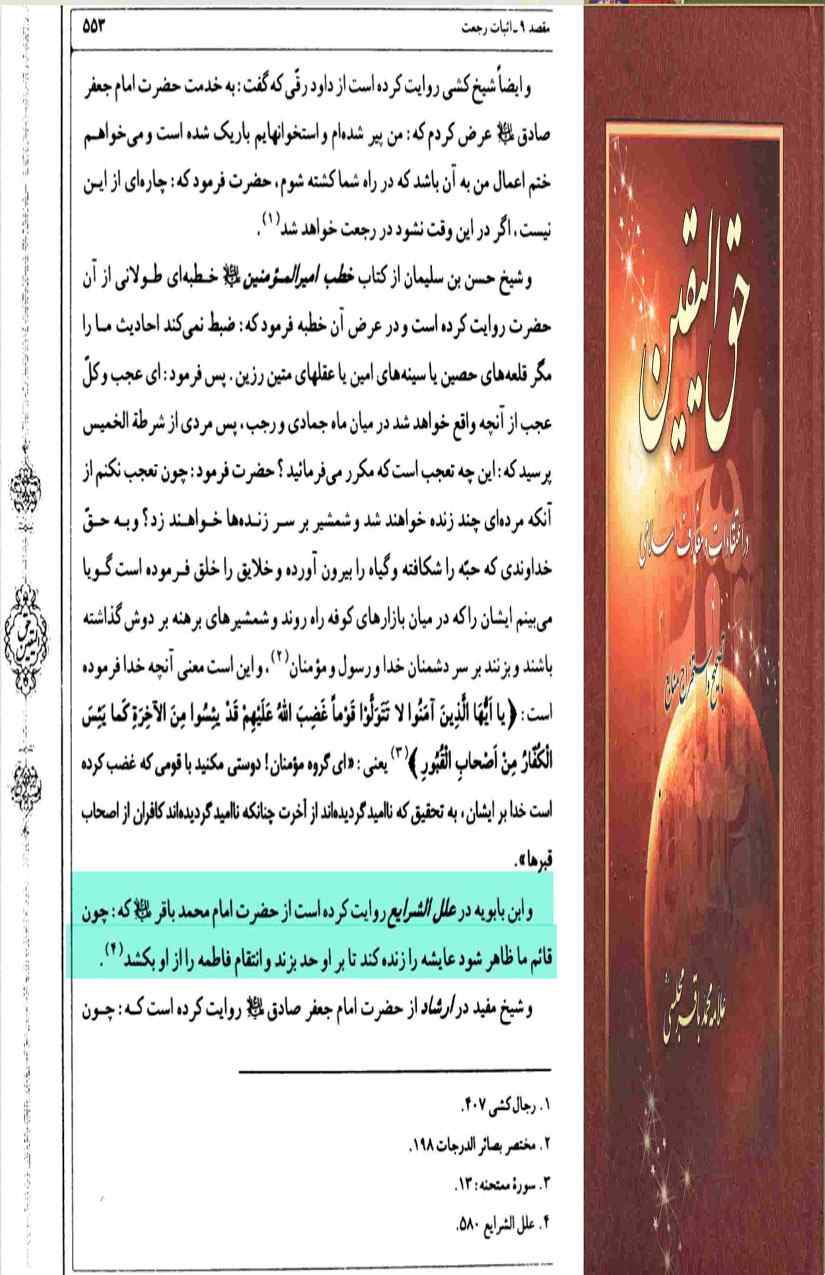 مقصد ۹ ـ اثبات رجعت
۵۵۳
و ایضاً شیخ کشی روایت کرده است از داود رقّی که گفت: به خدمت حضرت امام جعفر
صادق علیه السلام عرض کردم که: من پیر شده‌ام و استخوانهایم باریک شده است و می‌خواهم
ختم اعمال من به آن باشد که در راه شما کشته شوم، حضرت فرمود که: چاره‌ای از این
نیست، اگر در این وقت نشود در رجعت خواهد شد(۱).
و شیخ حسن بن سلیمان از کتاب خطب امیرالمؤمنین علیه السلام خطبه‌ای طولانی از آن
حضرت روایت کرده است و در عرض آن خطبه فرمود که: ضبط نمی‌کند احادیث ما را
مگر قلعه‌های حصین یا سینه‌های امین یا عقلهای متین رزین. پس فرمود: ای عجب و کلّ
عجب از آنچه واقع خواهد شد در میان ماه جمادی و رجب، پس مردی از شرطة الخمیس
پرسید که: این چه تعجب است که مکرر می‌فرمائید؟ حضرت فرمود: چون تعجب نکنم از
آنکه مرده‌ای چند زنده خواهند شد و شمشیر بر سر زنده‌ها خواهند زد؟ و به حقّ
خداوندی که حبّه را شکافته و گیاه را بیرون آورده و خلایق را خلق فرموده است گویا
می‌بینم ایشان را که در میان بازارهای کوفه راه روند و شمشیرهای برهنه بر دوش گذاشته
باشند و بزنند بر سر دشمنان خدا و رسول و مؤمنان(۲)، و این است معنی آنچه خدا فرموده
است: ﴿یا اَیُّهَا الَّذِینَ آمَنُوا لا تَتَوَلَّوْا قَوْماً غَضِبَ اللهُ عَلَیْهِمْ قَدْ یَئِسُوا مِنَ الآخِرَةِ کَما یَئِسَ
الْکُفّارُ مِنْ اَصْحابِ الْقُبُورِ﴾(۳) یعنی: «ای گروه مؤمنان! دوستی مکنید با قومی که غضب کرده
است خدا بر ایشان، به تحقیق که ناامید گردیده‌اند از آخرت چنانکه ناامید گردیده‌اند کافران از اصحاب
قبرها».
و ابن بابویه در علل الشرایع روایت کرده است از حضرت امام محمد باقر علیه السلام که: چون
قائم ما ظاهر شود عایشه را زنده کند تا بر او حد بزند و انتقام فاطمه را از او بکشد(۴).
و شیخ مفید در ارشاد از حضرت امام جعفر صادق علیه السلام روایت کرده است که: چون
۱. رجال کشی ۴۰۷.
۲. مختصر بصائر الدرجات ۱۹۸.
۳. سورهٔ ممتحنه: ۱۳.
۴. علل الشرایع ۵۸۰.
حق الیقین
حق الیقین
در اعتقادات و معارف اسلامی
علامه محمد باقر مجلسی